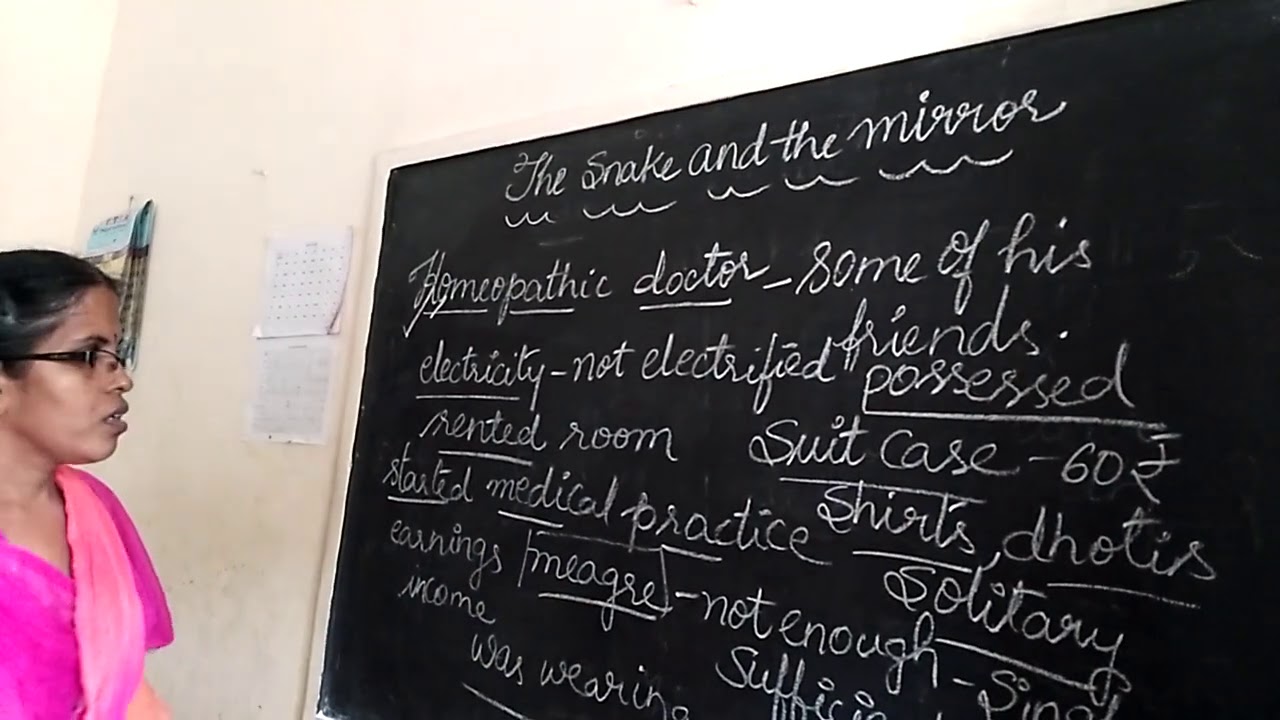 The Snake and the mirror
Homeopathic doctor - Some of his
friends.
electricity - not electrified
possessed
rented room
Suit case - 60 ₹
started medical practice
Shirts, dhotis
earnings meagre - not enough
Solitary
income
was wearing